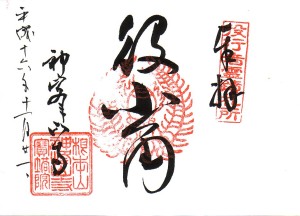 奉拝
役行者霊蹟札所
役小角
神峯山寺
根本山
神峯山寺
寶塔院
平成十六年十一月廿一日